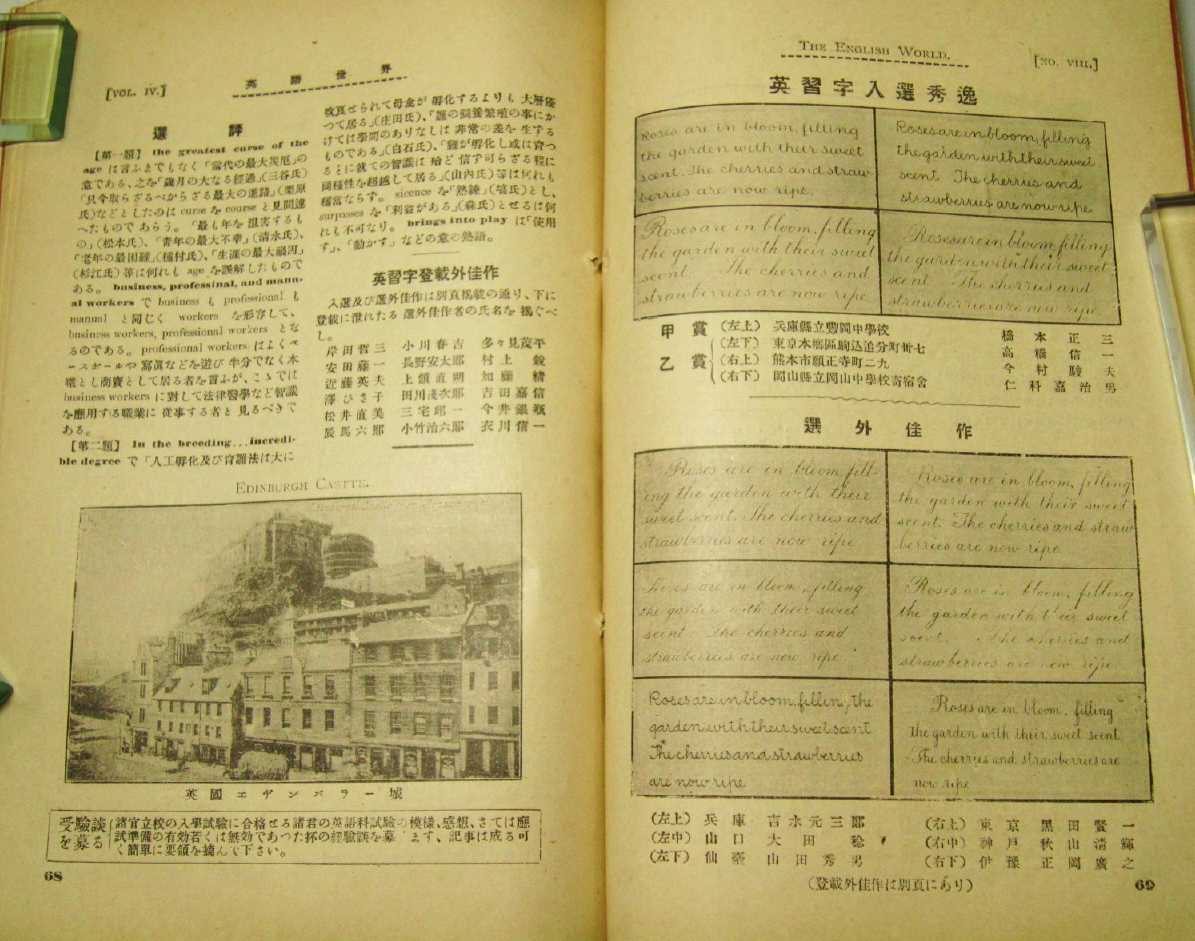 [VOL. IV.]
英語世界
選評
【第一題】 the greatest curse of the
age は言ふまでもなく「當代の最大災厄」の
意である、之を「歲月の大なる經過」(三谷氏)
「只今取らざるべからざる最大の進路」(栗原
氏)などとしたのは curse を course と見間違
へたもので あらう。「最も年を 損害するも
の」(松本氏)、「青年の最大不幸」(清水氏)、
「老年の最困難」(植村氏)、「生涯の最大禍因」
(杉江氏)等は何れも age を誤解したもので
ある。 business, professinal, and manu-
al workers で business も professional も
manual と同じく workers を形容して、
business workers, professional workers とな
るのである。professional workers はよくベ
ースボールや 寫眞などを遊び 半分でなく本
職とし商賣として居る者を言ふが、こゝでは
business workers に對して法律醫學など智識
を應用する職業に 從事する者と 見るべきで
ある。
【第二題】 In the breeding...incredi-
ble degree で「人工孵化及び育雛法は大に
改良せられて母禽が 孵化するよりも 大層優
つて居る」(庄田氏)、「雛の飼養繁殖の事にか
けては學問のありなしは 非常の差を 生する
ものである」(白石氏)、「雛が孵化し或は育つ
るとに就ての智識は 殆ど 信ず可らざる程に
同種性を超越して居る」(山內氏)等は何れも
穩當ならず。sicence を「熟練」(塙氏)とし、
surpasses を「利益がある」(森氏)とせるは何
れも不可なり。 brings into play は「使用
す」、「動かす」などの意の熟語。
英習字登載外佳作
入選及び選外佳作は別頁揭載の通り、下に
登載に洩れたる 選外佳作者の氏名を 揭ぐべ
し。
岸田哲三 小川春吉 多々見茂平
安田藤一 長野安太郎 村上 銳
近藤英夫 上領直朔 加藤 精
澤ひさ子 田川淺次郎 吉田嘉信
松井直美 三宅郎一 今井銀瓶
辰馬六郎 小竹治六郎 衣川信一
EDINBURGH CASTTE.
英國エヂンバラー城
受驗談を募る
諸官立校の入學試驗に合格せる諸君の英語科試驗の模樣、感想、さては應
試準備の有効若くは無効であつた杯の經驗談を募 ます、記事は成る可
く簡單に要領を摘んで下さい。
68
THE ENGLISH WORLD.
[NO. VIII.]
英習字入選秀逸
Roses are in bloom, filling
the garden with their sweet
scent. The cherries and straw
berries are now ripe.
Roses are in bloom, filling
the garden with their sweet
scent. The cherries and
strawberries are now ripe.
Roses are in bloom, filling
the garden with their sweet
scent. The cherries and
strawberries are now ripe.
Roses are in bloom, filling
the garden with their sweet
scent. The cherries and
strawberries are now ripe.
甲賞 (左上) 兵庫縣立豐岡中學校 橋本正三
乙賞 (左下) 東京本鄉區駒込追分町卅七 高橋信一
(右上) 熊本市願正寺町二九 今村駿夫
(右下) 岡山縣立岡山中學校寄宿舍 仁科嘉治男
選外佳作
Roses are in bloom, fill-
ing the garden with their
sweet scent. The cherries and
strawberries are now ripe
Roses are in bloom, filling
the garden with their sweet
scent. The cherries and straw
berries are now ripe.
Roses are in bloom, filling
the garden with their sweet
scent. The cherries and
strawberries are now ripe.
Roses are in bloom, filling
the garden with their sweet
scent. The cherries and
strawberries are now ripe.
Roses are in bloom, fillin, the
garden with their sweet scent
The cherries and strawberries
are now ripe.
Roses are in bloom, filling
the garden with their sweet scent.
The cherries and strawberries are
now ripe.
(左上) 兵庫 吉水元三郎 (右上) 東京 黑田賢一
(左中) 山口 大田稔 (右中) 神戶 秋山淸輝
(左下) 仙臺 山田秀男 (右下) 伊豫 正岡廣之
(登載外佳作は別頁にあり)
69